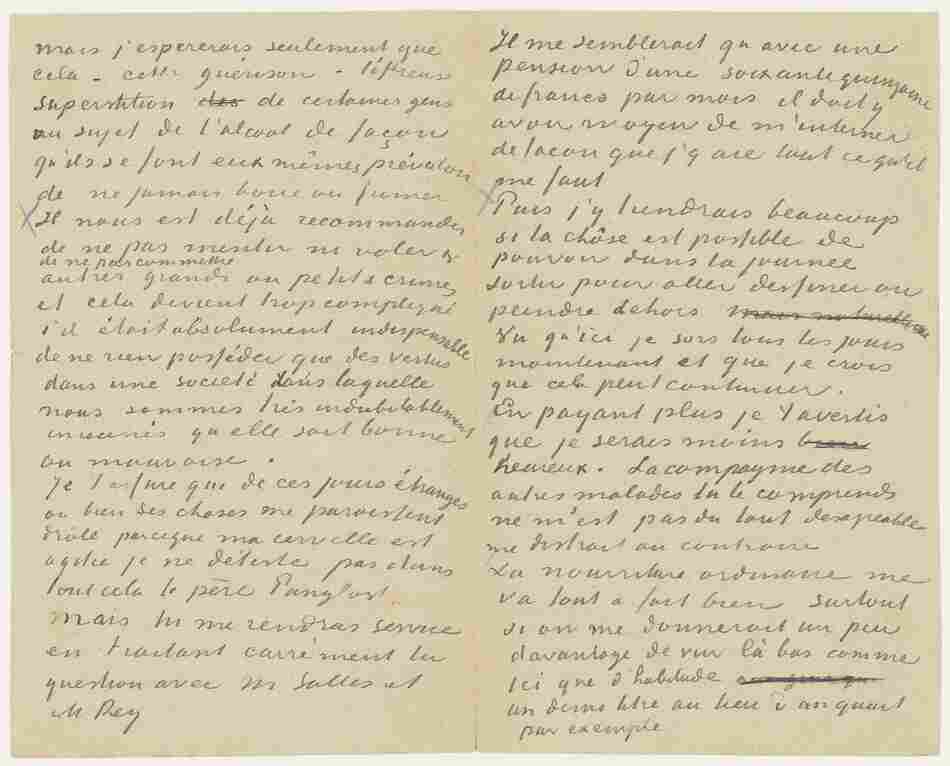 mais j'espererais seulement que
cela - cette guérison - l'affreuse
superstition des de certaines gens
au sujet de l'alcool de façon
qu'ils se font eux mêmes prévaloir
de ne jamais boire ou fumer
Il nous est déjà recommandé
de ne pas mentir ni voler &
de ne pas commettre
autres grands ou petits crimes
et cela devient trop compliqué
s'il était absolument indispensable
de ne rien posséder que des vertus
dans une société dans laquelle
nous sommes très indubitablement
enracinés qu'elle soit bonne
ou mauvaise.
Je t'assure que de ces jours étranges
ou bien des choses me paraissent
drôle parceque ma cervelle est
agitée je ne déteste pas dans
tout cela le père Pangloss.
Mais tu me rendras service
en traitant carrément la
question avec M Salles et
M Rey
Il me semblerait qu'avec une
pension d'une soixante quinzaine
de francs par mois il doit y
avoir moyen de m'interner
de facon que j'y aie tout ce qu'il
me faut
Puis j'y tiendrais beaucoup
si la chôse est possible de
pouvoir dans la journée
sortir pour aller dessiner ou
peindre dehors
Vu qu'ici je sors tous les jours
maintenant et que je crois
que cela peut continuer.
En payant plus je t'avertis
que je serais moins bien
heureux. La compagnie des
autres malades tu le comprends
ne m'est pas du tout desagreable
me distrait au contraire
La nourriture ordinaire me
va tout à fait bien surtout
si on me donnerait un peu
davantage de vin là bas comme
ici que d'habitude
un demi litre au lieu d'un quart
par exemple